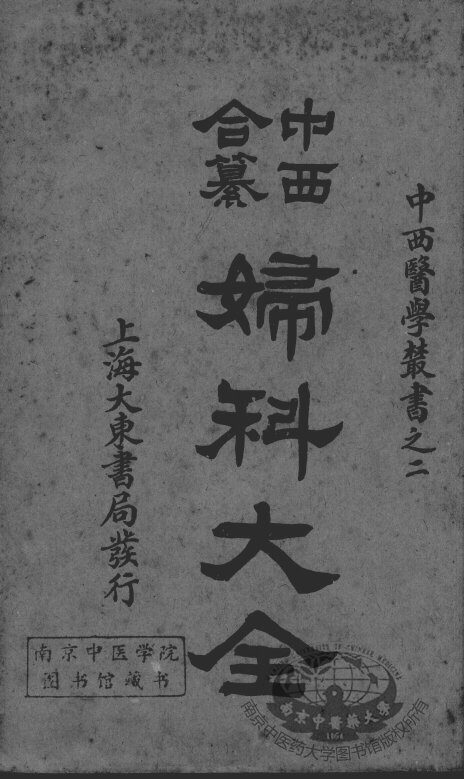 中西醫學叢書之二
中西
合纂
婦科大全
上海大東書局發行
南京中医学院
图书馆藏书
南京中醫藥大學
1954
南京中医药大学图书馆版权所有